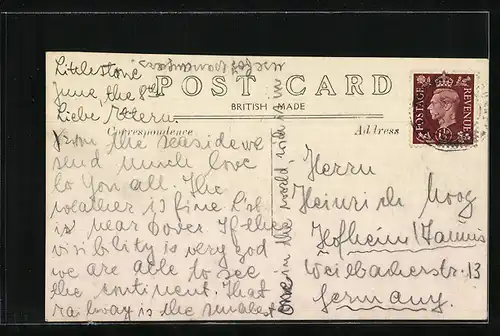 Littlestone
June, the 8th
POST CARD
BRITISH MADE
Correspondence
Address
POSTAGE
REVENUE
Liebe Eltern.
From the seaside we
send much love
to You all. The
weather is fine
is near Dover. If the
visibility is very god
we are able to see
the continent. That
railway is the smalest
one in the world, wich is in
Herrn
Heinrich Moog
Hofheim/Taunus
Weilbacherstr. 13
Germany.